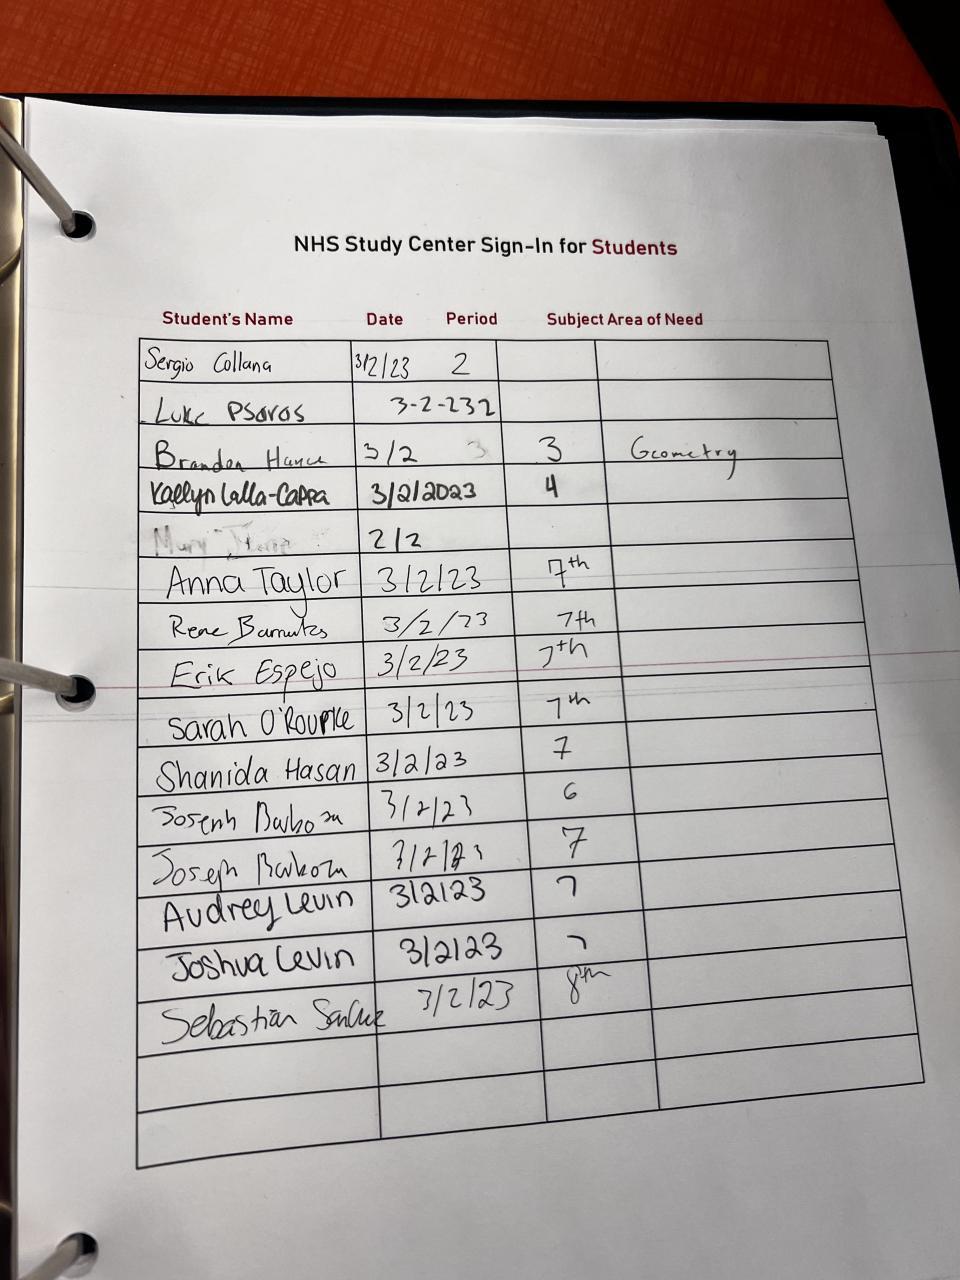 NHS Study Center Sign-In for Students
Student's Name Date Period Subject Area of Need
Sergio Collana 3/2/23 2
Luke Psaros 3-2-23 2
Brandon 3/2 3 3 Geometry
Kaelyn Lalla-Cappa 3/2/2023 4
2/2
Anna Taylor 3/2/23 7th
Rene 3/2/23 7th
Erik Espejo 3/2/23 7th
Sarah O'Rourke 3/2/23 7th
Shanida Hasan 3/2/23 7
Joseph Barboza 3/2/23 6
Joseph Barboza 3/2/23 7
Audrey Levin 3/2/23 7
Joshua Levin 3/2/23 7
Sebastian 3/2/23 8th